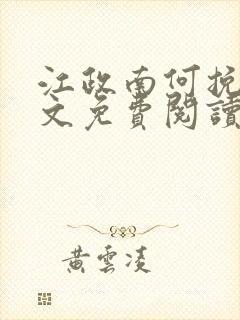 江政南何抗
文免費閱讀
黃雲凌